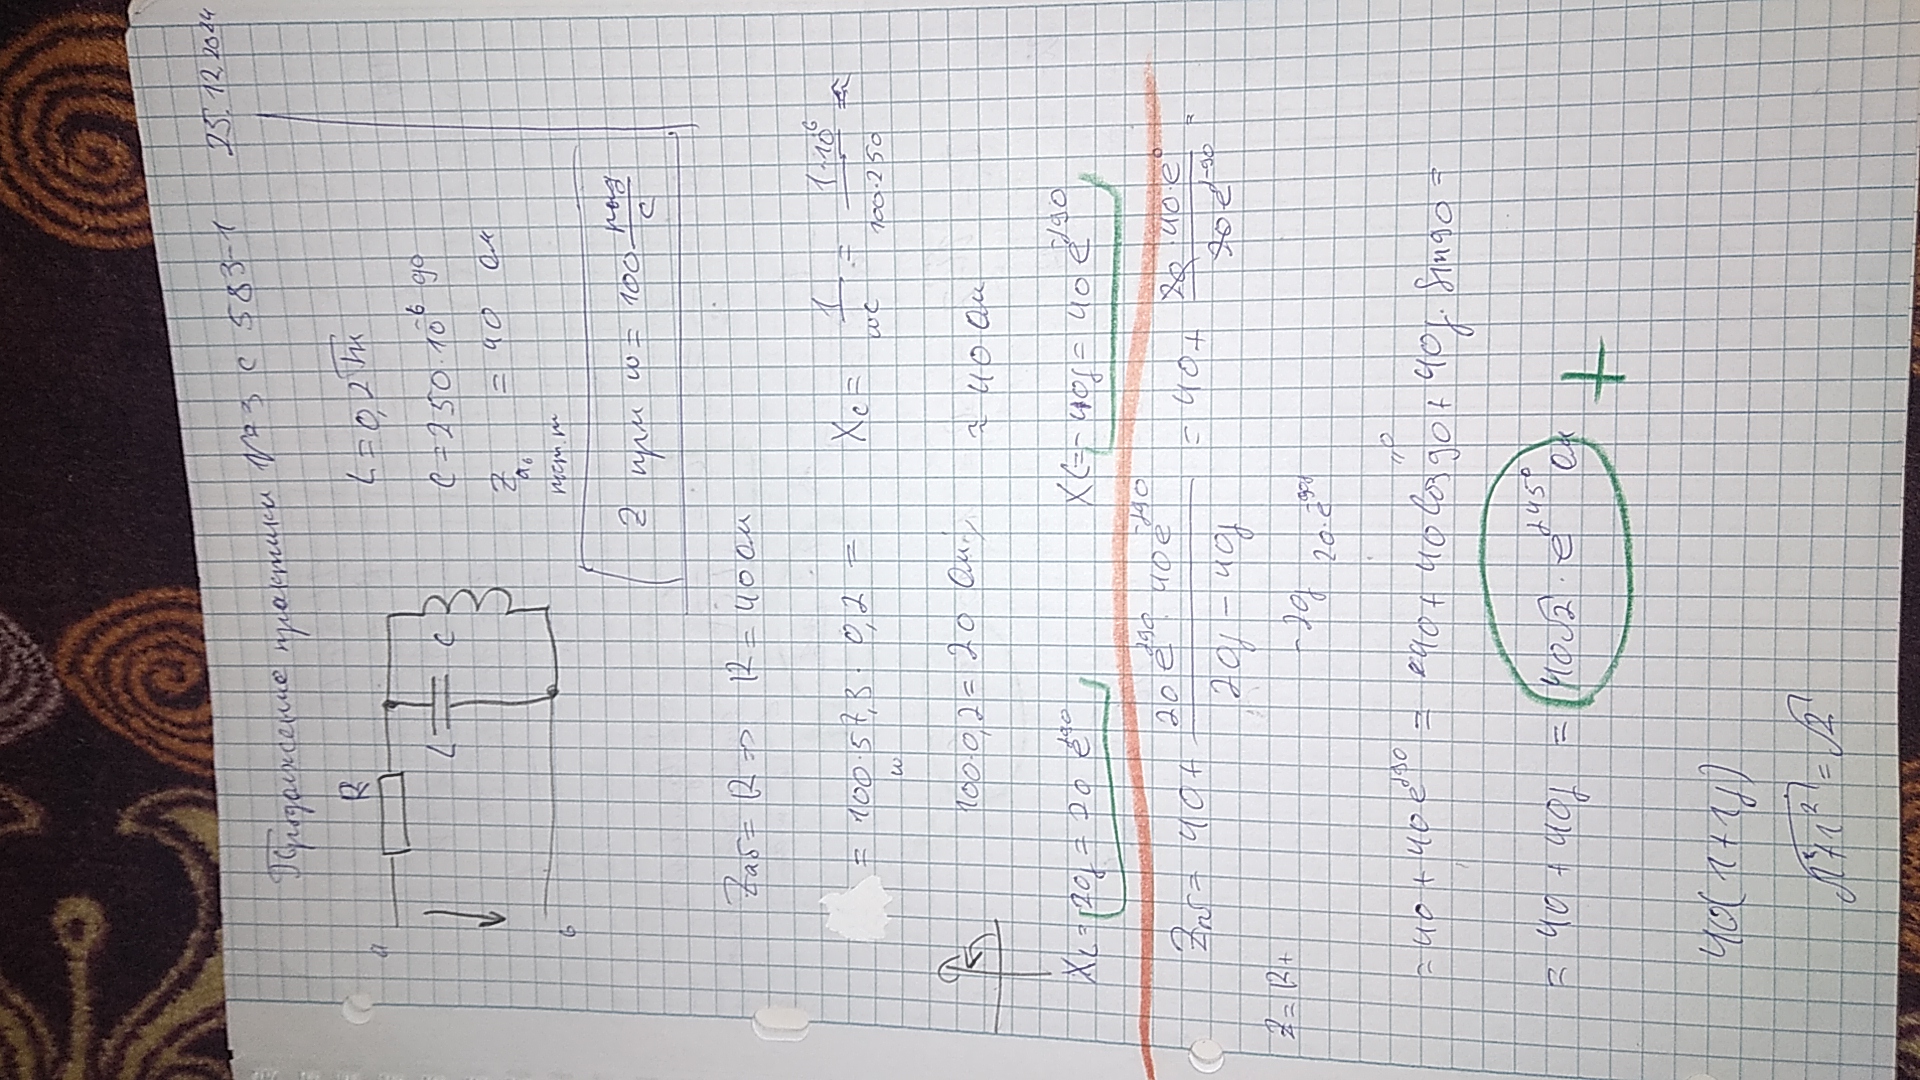 Продолжение практики №3 с 583-1 25.12.2024
R
a
L = 0,2 Гн
L C
C = 250·10^-6 Ф
Z_аб = 40 Ом
пост.т
б
Z при ω = 100 рад/с
Zаб = R ⇒ R = 40 Ом
= 100·57,3·0,2 = Xc = 1/ωC = 1·10^6/100·250 ≈
ω
100·0,2 = 20 Ом; ≈ 40 Ом
XL = 20j = 20 e^j90 XC = -40j = 40 e^-j90
Zаб = 40 + 20 e^j90 · 40 e^-j90 / 20j - 40j = 40 + 20·40·e^0 / 20 e^j-90 =
Z = R +
-20j 20·e^-90j
"0
= 40 + 40 e^j90 = 40 + 40 Cos 90 + 40j · Sin 90 =
= 40 + 40j = 40√2 · e^j45° Ом +
40(1+1j)
√1²+1² = √2